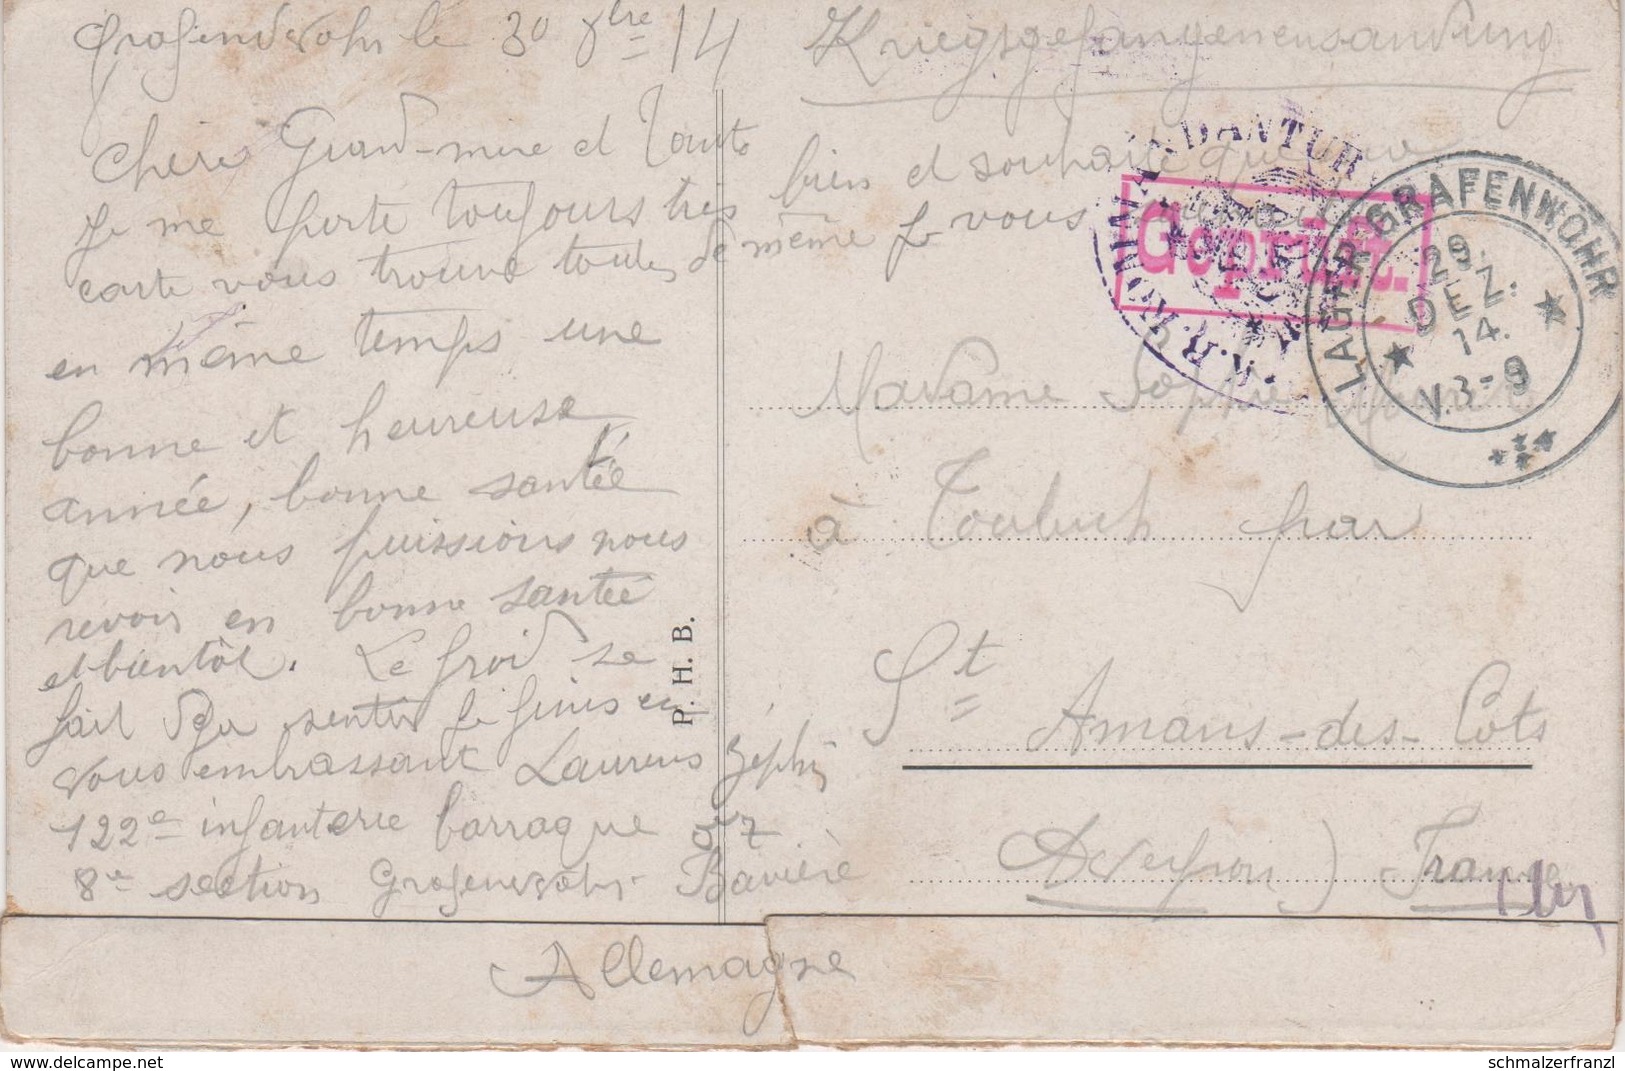 Grafenwohr le 30 Xbre 14
Kriegsgefangenensandung
Chère Grand-mere et Tante
Je me porte toujours très bien et souhaite que
carte vous trouve toutes de même Je vous
en même temps une
bonne et heureuse
année, bonne santée
que nous puissions nous
revoir en bonne santée
et bientôt. Le froid se
fait deja sentir Je finis en
vous embrassant Laurens Zéphi
122e infanterie barraque
8e section Grafenwohr Bavière
Allemagne
P. H. B.
Geprüft.
LAGER GRAFENWÖHR
29.
DEZ.
14.
V.8-9
Madame Sophie
à par
St
Amans-des-Cots
Aveyron) France
delcampe.net
schmalzerfranzl